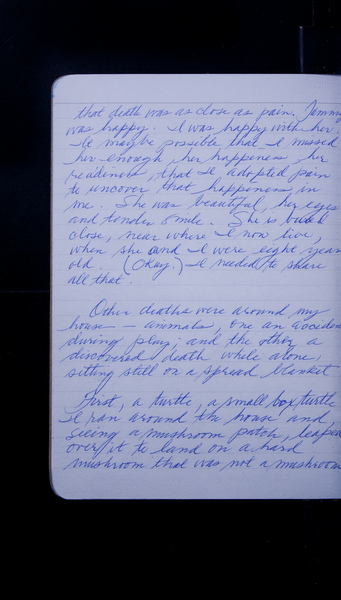 that death was as close as pain. Jimmy
was happy. I was happy with her.
It may be possible that I missed
her enough, her happeness, her
readiness, that I adopted pain
to uncover that happeness in
me. She was beautiful, her eyes
and tender smile. She is buried
close, near where I now live,
when she and I were eight years
old. (Okay.) I needed to share
all that.
Other deaths were around my
house — animals, one an accident
during play; and the other a
discovered death while alone,
sitting still on a spread blanket
First, a turtle, a small box turtle
I ran around the house and
seeing a mushroom patch, leaped
over it to land on a hard
mushroom that was not a mushroom